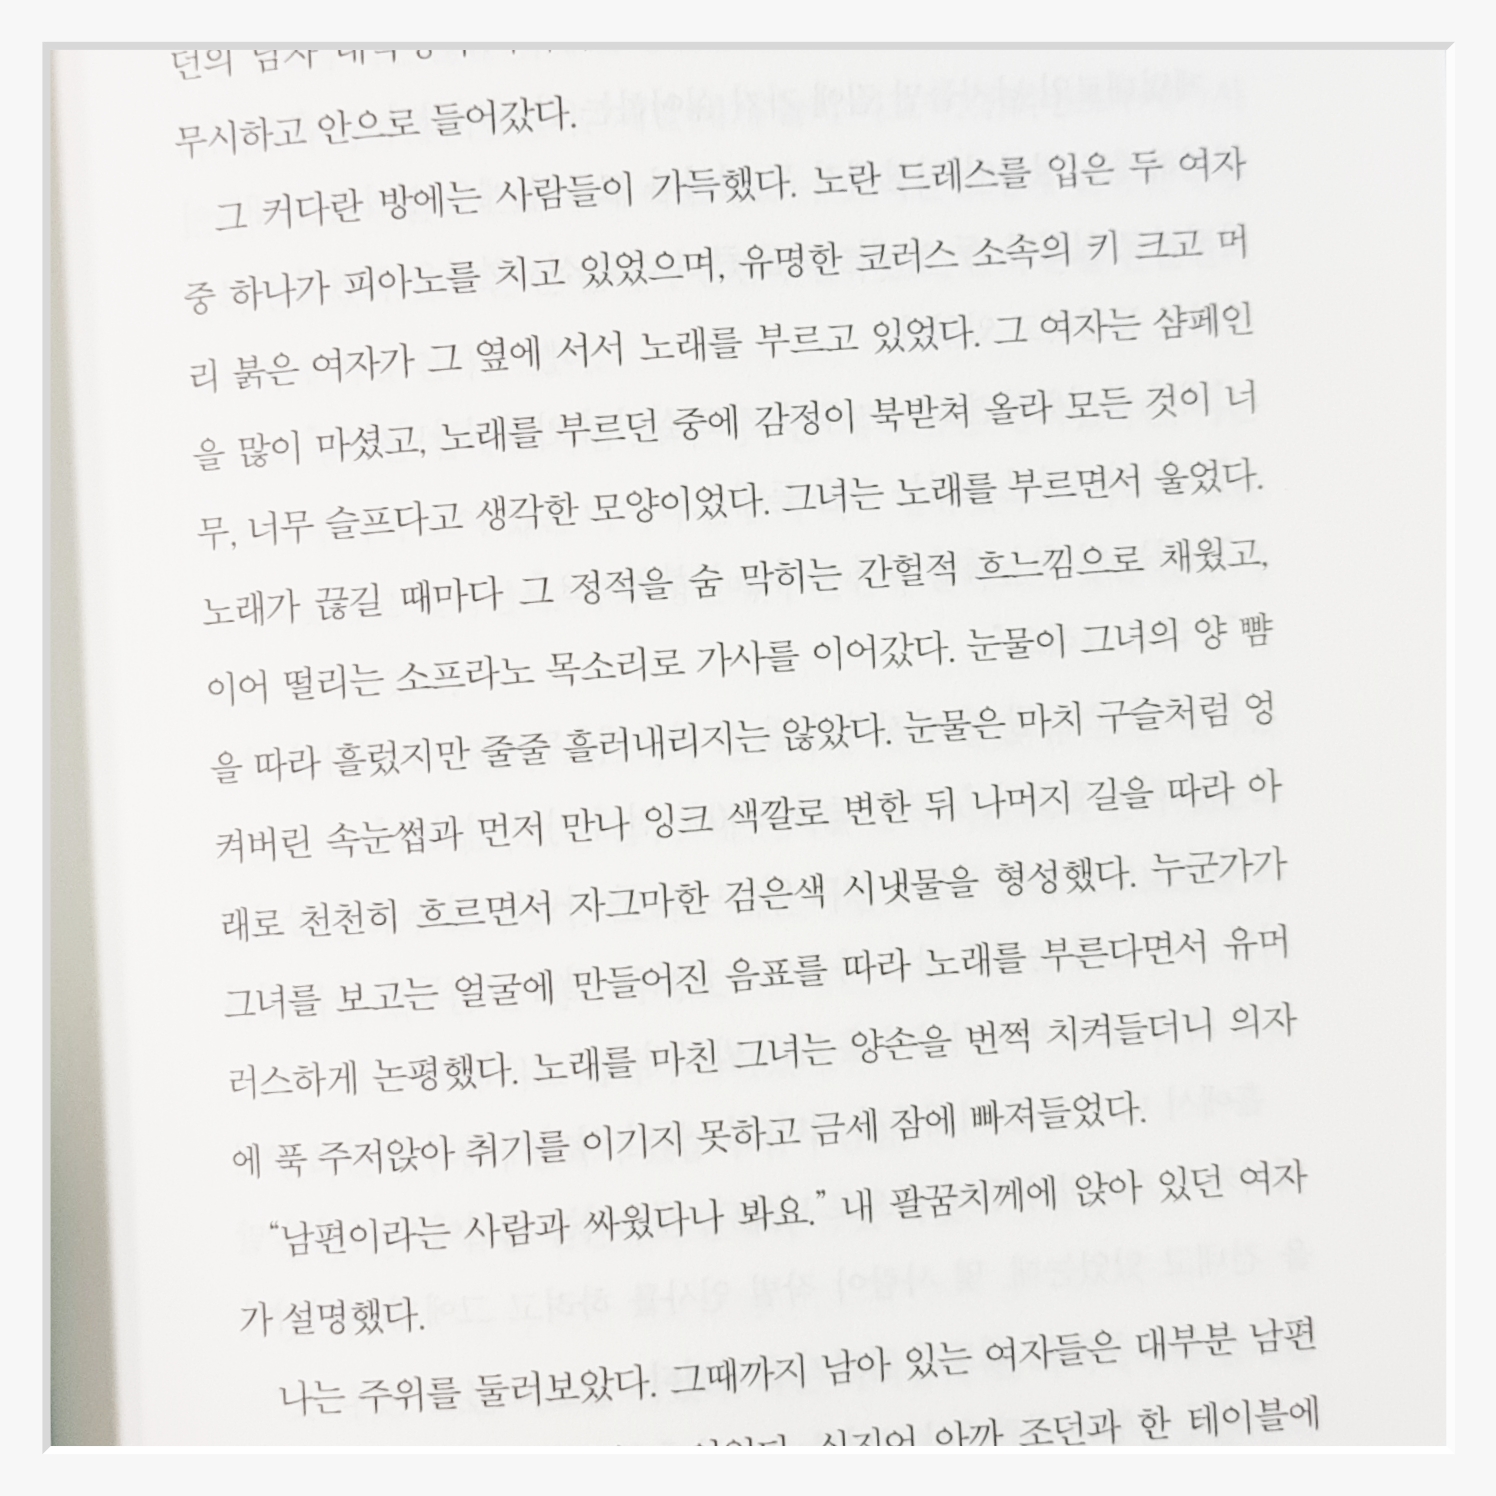 던의 남자
무시하고 안으로 들어갔다.
그 커다란 방에는 사람들이 가득했다. 노란 드레스를 입은 두 여자
중 하나가 피아노를 치고 있었으며, 유명한 코러스 소속의 키 크고 머
리 붉은 여자가 그 옆에 서서 노래를 부르고 있었다. 그 여자는 샴페인
을 많이 마셨고, 노래를 부르던 중에 감정이 북받쳐 올라 모든 것이 너
무, 너무 슬프다고 생각한 모양이었다. 그녀는 노래를 부르면서 울었다.
노래가 끊길 때마다 그 정적을 숨 막히는 간헐적 흐느낌으로 채웠고,
이어 떨리는 소프라노 목소리로 가사를 이어갔다. 눈물이 그녀의 양 뺨
을 따라 흘렀지만 줄줄 흘러내리지는 않았다. 눈물은 마치 구슬처럼 엉
켜버린 속눈썹과 먼저 만나 잉크 색깔로 변한 뒤 나머지 길을 따라 아
래로 천천히 흐르면서 자그마한 검은색 시냇물을 형성했다. 누군가가
그녀를 보고는 얼굴에 만들어진 음표를 따라 노래를 부른다면서 유머
러스하게 논평했다. 노래를 마친 그녀는 양손을 번쩍 치켜들더니 의자
에 푹 주저앉아 취기를 이기지 못하고 금세 잠에 빠져들었다.
“남편이라는 사람과 싸웠다나 봐요.” 내 팔꿈치께에 앉아 있던 여자
가 설명했다.
나는 주위를 둘러보았다. 그때까지 남아 있는 여자들은 대부분 남편
심지어 아까 조던과 한 테이블에